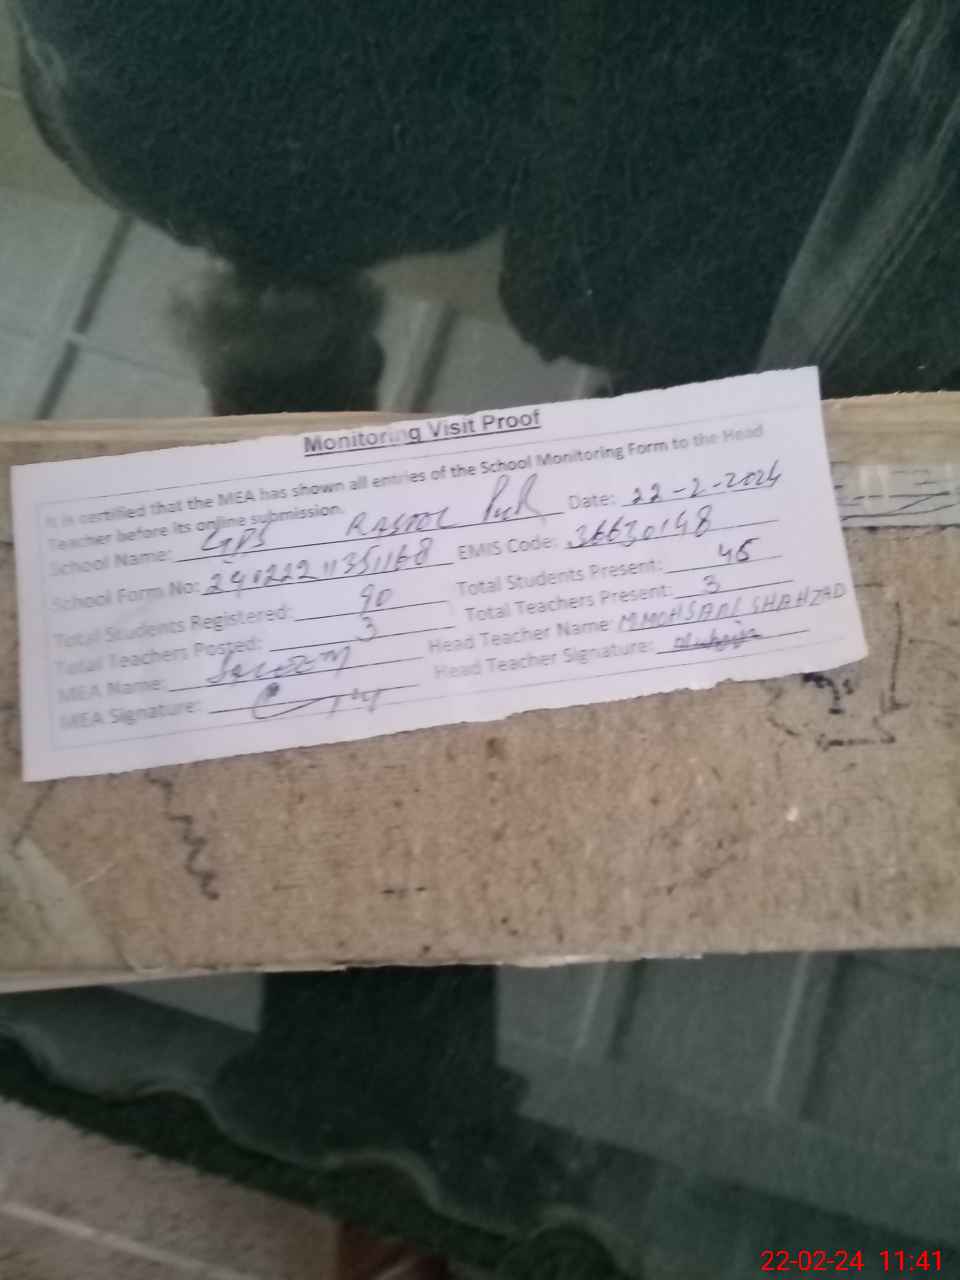 Monitoring Visit Proof
It is certified that the MEA has shown all entries of the School Monitoring Form to the Head
Teacher before its online submission.
School Name: GPS RASOOL PUR Date: 22-2-2024
School Form No: EMIS Code: 36630148
Total Students Registered: 90 Total Students Present: 45
Total Teachers Posted: 3 Total Teachers Present: 3
MEA Name: Head Teacher Name: SHAHZAD
MEA Signature: Head Teacher Signature:
22-02-24 11:41